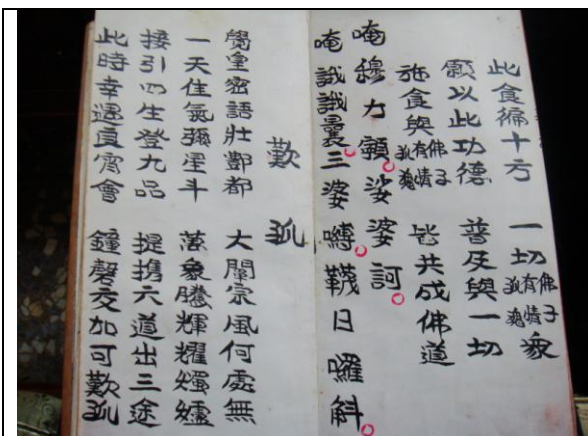 此食徧十方 一切佛子有情孤魂眾
願以此功德 普及與一切
施食與佛子有情孤魂 皆共成佛道
唵穆力顉娑婆訶
唵誐誐曩三婆嚩韈日囉斛
歎孤
覺皇密語壯酆都 大闡宗風何處無
一天佳氣彌星斗 萬象騰輝耀燭爐
接引四生登九品 提携六道出三途
此時幸遇良宵會 鐘磬交加可歎孤